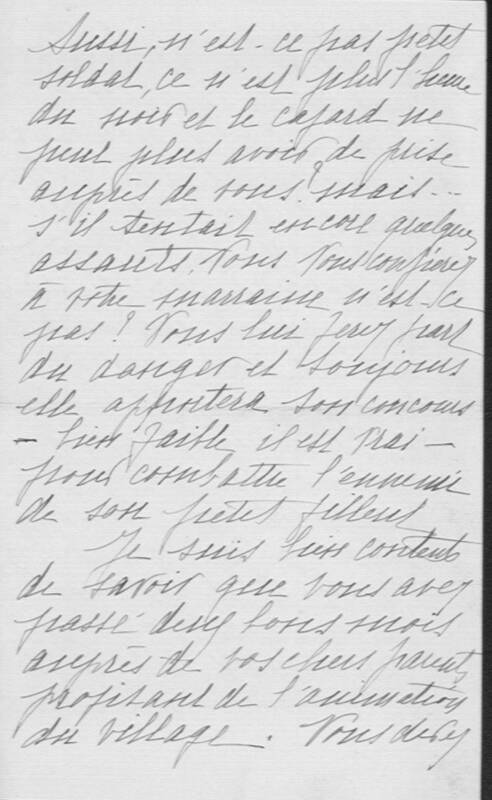 Aussi, n'est-ce pas petit
soldat, ce n'est plus l'heure
du noir et le cafard ne
peut plus avoir de prise
auprès de vous? mais...
s'il tentait encore quelques
assauts, vous vous confierez
à votre marraine n'est-ce
pas? Vous lui ferez part
du danger et toujours
elle apportera son concours
– bien faible il est vrai –
pour combattre l'ennemi
de son petit filleul
Je suis bien contente
de savoir que vous avez
passé deux bons mois
auprès de vos chers parents,
profitant de l'animation
du village. Vous devez